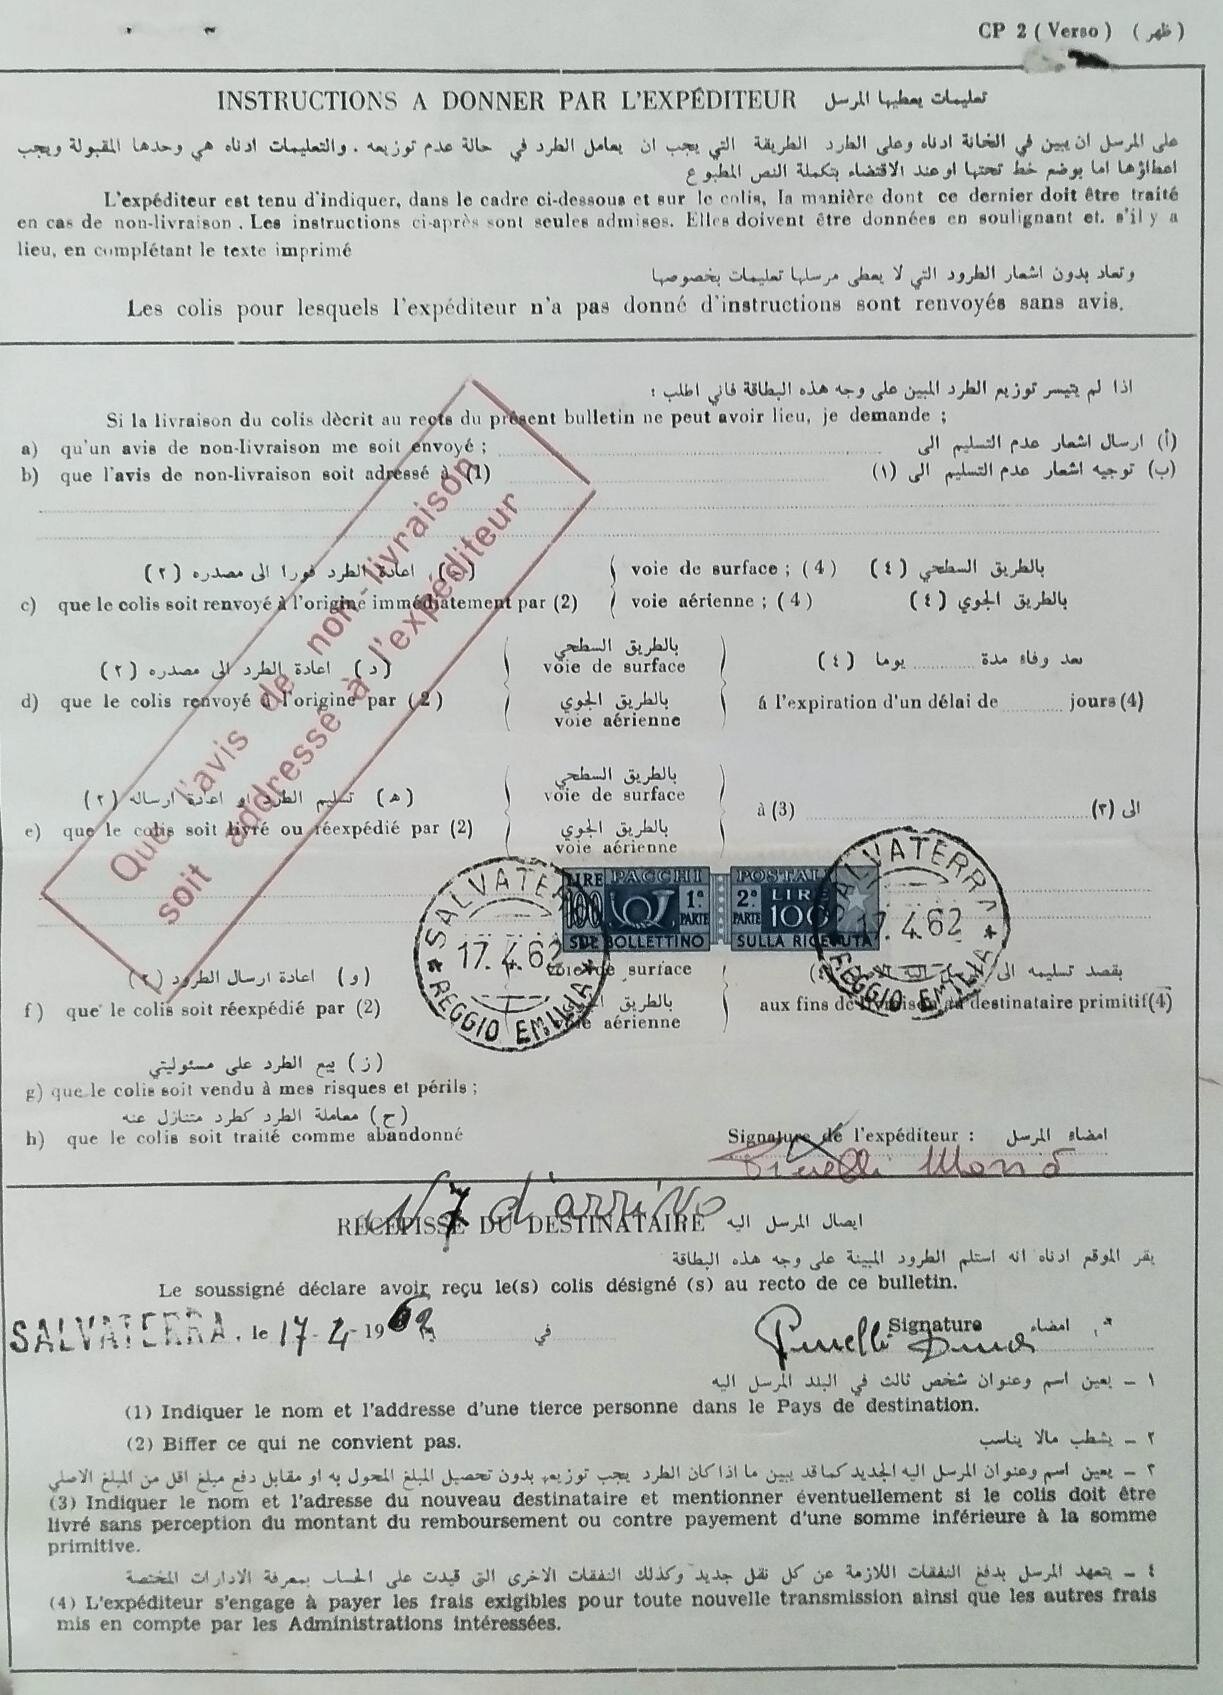 CP 2 ( Verso ) ( ظهر )
INSTRUCTIONS A DONNER PAR L'EXPÉDITEUR تعليمات يعطيها المرسل
على المرسل ان يبين في الخانة ادناه وعلى الطرد الطريقة التي يجب ان يعامل الطرد في حالة عدم توزيعه . والتعليمات ادناه هي وحدها المقبولة ويجب
اعطاؤها اما بوضع خط تحتها او عند الاقتضاء بتكملة النص المطبوع
L'expéditeur est tenu d'indiquer, dans le cadre ci-dessous et sur le colis, la manière dont ce dernier doit être traité
en cas de non-livraison . Les instructions ci-après sont seules admises. Elles doivent être données en soulignant et. s'il y a
lieu, en complétant le texte imprimé
وتعاد بدون اشعار الطرود التي لا يعطى مرسلها تعليمات بخصوصها
Les colis pour lesquels l'expéditeur n'a pas donné d'instructions sont renvoyés sans avis.
اذا لم يتيسر توزيع الطرد المبين على وجه هذه البطاقة فاني اطلب :
Si la livraison du colis dècrit au recto du présent bulletin ne peut avoir lieu, je demande ;
a) qu'un avis de non-livraison me soit envoyé ; (أ) ارسال اشعار عدم التسليم الى
b) que l'avis de non-livraison soit adressé à (1) (ب) توجيه اشعار عدم التسليم الى (١)
Que l'avis de non-livraison
soit addressé à l'expéditeur
اعادة الطرد فورا الى مصدره (٢) voie de surface ; ( 4 ) بالطريق السطحي (٤)
c) que le colis soit renvoyé à l'origine immédiatement par (2) voie aérienne ; ( 4 ) بالطريق الجوي (٤)
(د) اعادة الطرد الى مصدره (٢) بالطريق السطحي بعد وفاء مدة يوما (٤)
voie de surface
d) que le colis renvoyé à l'origine par ( 2 ) بالطريق الجوي á l'expiration d'un délai de jours (4)
voie aérienne
(ه) تسليم الطرد او اعادة ارساله (٢) بالطريق السطحي
voie de surface
à (3) الى (٣)
e) que le colis soit livré ou réexpédié par (2) بالطريق الجوي
voie aérienne
LIRE 100 PACCHI 1.ª PARTE SUL BOLLETTINO
POSTALI 2.ª PARTE LIRE 100 SULLA RICEVUTA
SALVATERRA 17.4.62 REGGIO EMILIA
SALVATERRA 17.4.62 REGGIO EMILIA
(و) اعادة ارسال الطرود (٢) voie de surface بقصد تسليمه الى
f ) que le colis soit réexpédié par (2) بالطريق voie aérienne aux fins de livraison au destinataire primitif (4)
(ز) بيع الطرد على مسئوليتي
g) que le colis soit vendu à mes risques et périls ;
(ح) معاملة الطرد كطرد متنازل عنه
h) que le colis soit traité comme abandonné
Signature de l'expéditeur : امضاء المرسل
N 7 d'arrivo
RECEPISSE DU DESTINATAIRE ايصال المرسل اليه
يقر الموقع ادناه انه استلم الطرود المبينة على وجه هذه البطاقة
Le soussigné déclare avoir reçu le(s) colis désigné (s) au recto de ce bulletin.
SALVATERRA, le 17-4-1962 في Signature امضاء
١ ـ يعين اسم وعنوان شخص ثالث في البلد المرسل اليه
(1) Indiquer le nom et l'addresse d'une tierce personne dans le Pays de destination.
(2) Biffer ce qui ne convient pas. ٢ ـ يشطب مالا يناسب
٣ ـ يعين اسم وعنوان المرسل اليه الجديد كما قد يبين ما اذا كان الطرد يجب توزيعه بدون تحصيل المبلغ المحول به او مقابل دفع مبلغ اقل من المبلغ الاصلي
(3) Indiquer le nom et l'adresse du nouveau destinataire et mentionner éventuellement si le colis doit être
livré sans perception du montant du remboursement ou contre payement d'une somme inférieure à la somme
primitive.
٤ ـ يتعهد المرسل بدفع النفقات اللازمة عن كل نقل جديد وكذلك النفقات الاخرى التي قيدت على الحساب بمعرفة الادارات المختصة
(4) L'expéditeur s'engage à payer les frais exigibles pour toute nouvelle transmission ainsi que les autres frais
mis en compte par les Administrations intéressées.